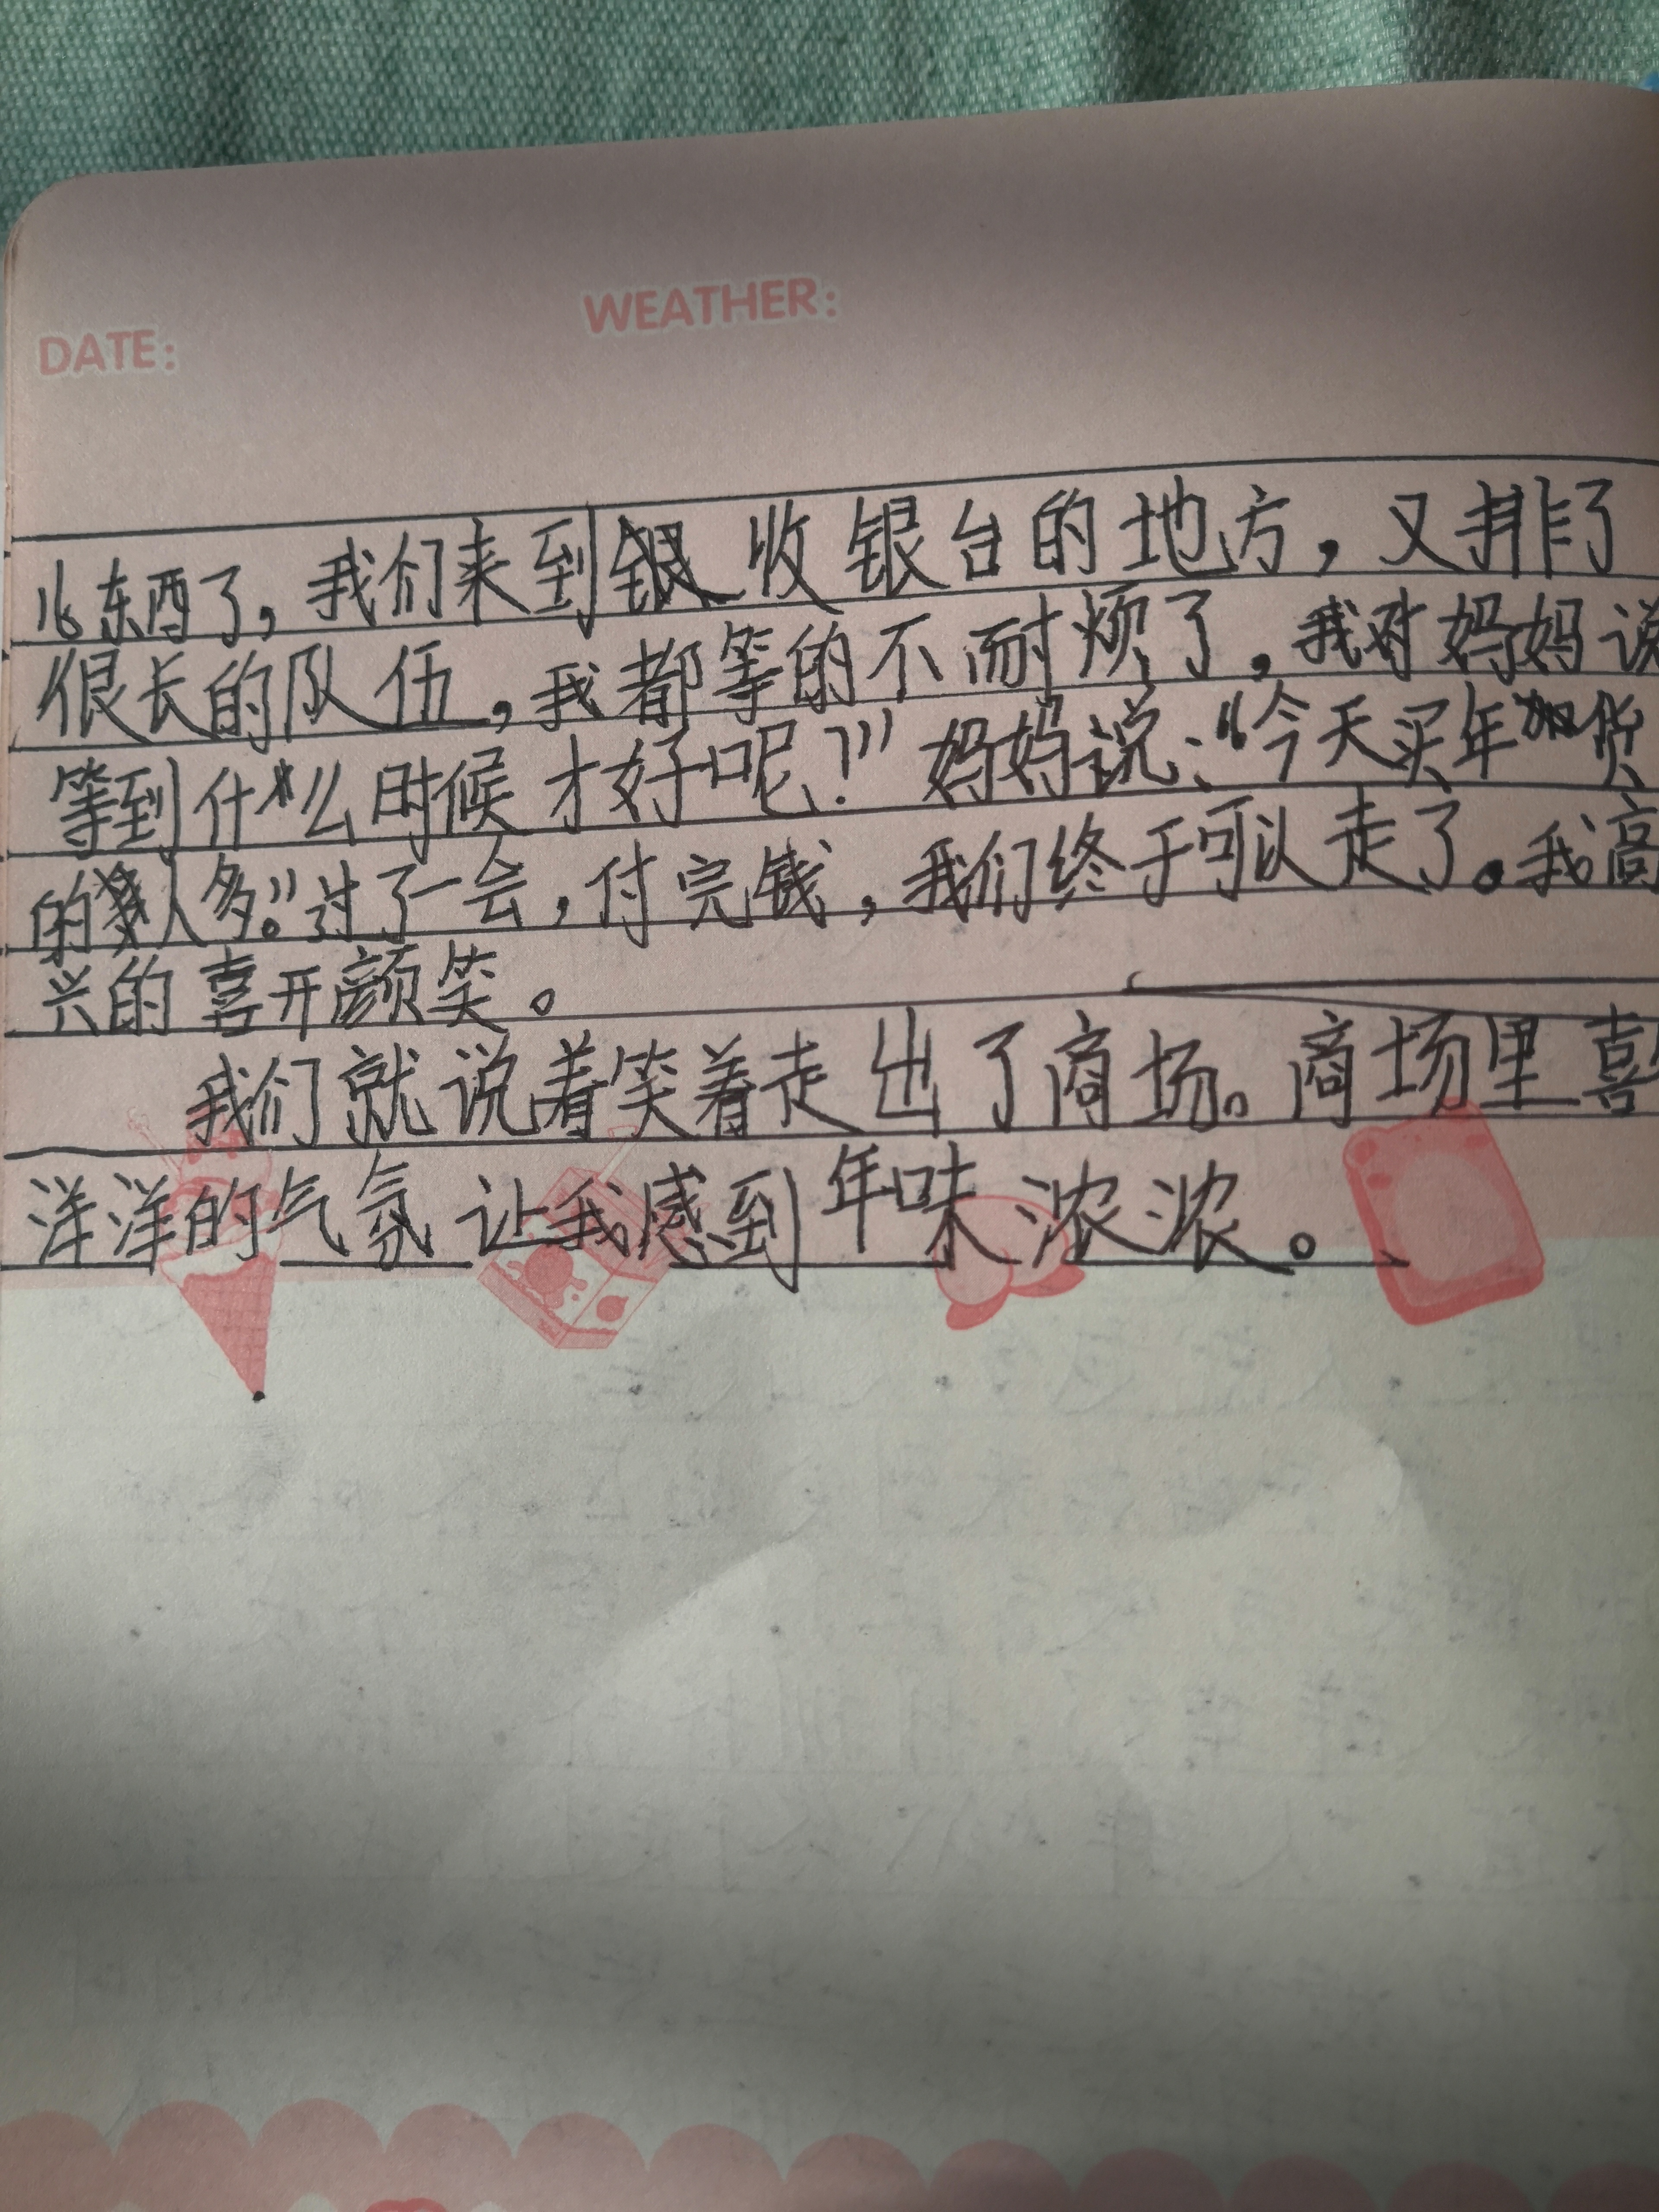 DATE:
WEATHER:
东西了，我们来到收银台的地方，又排了
很长的队伍，我都等的不耐烦了，我对妈妈说
等到什么时候才好呢？”妈妈说：“今天买年货
的人多。”过了一会，付完钱，我们终于可以走了。我高
兴的喜开颜笑。
我们就说着笑着走出了商场。商场里喜
洋洋的气氛让我感到年味浓浓。